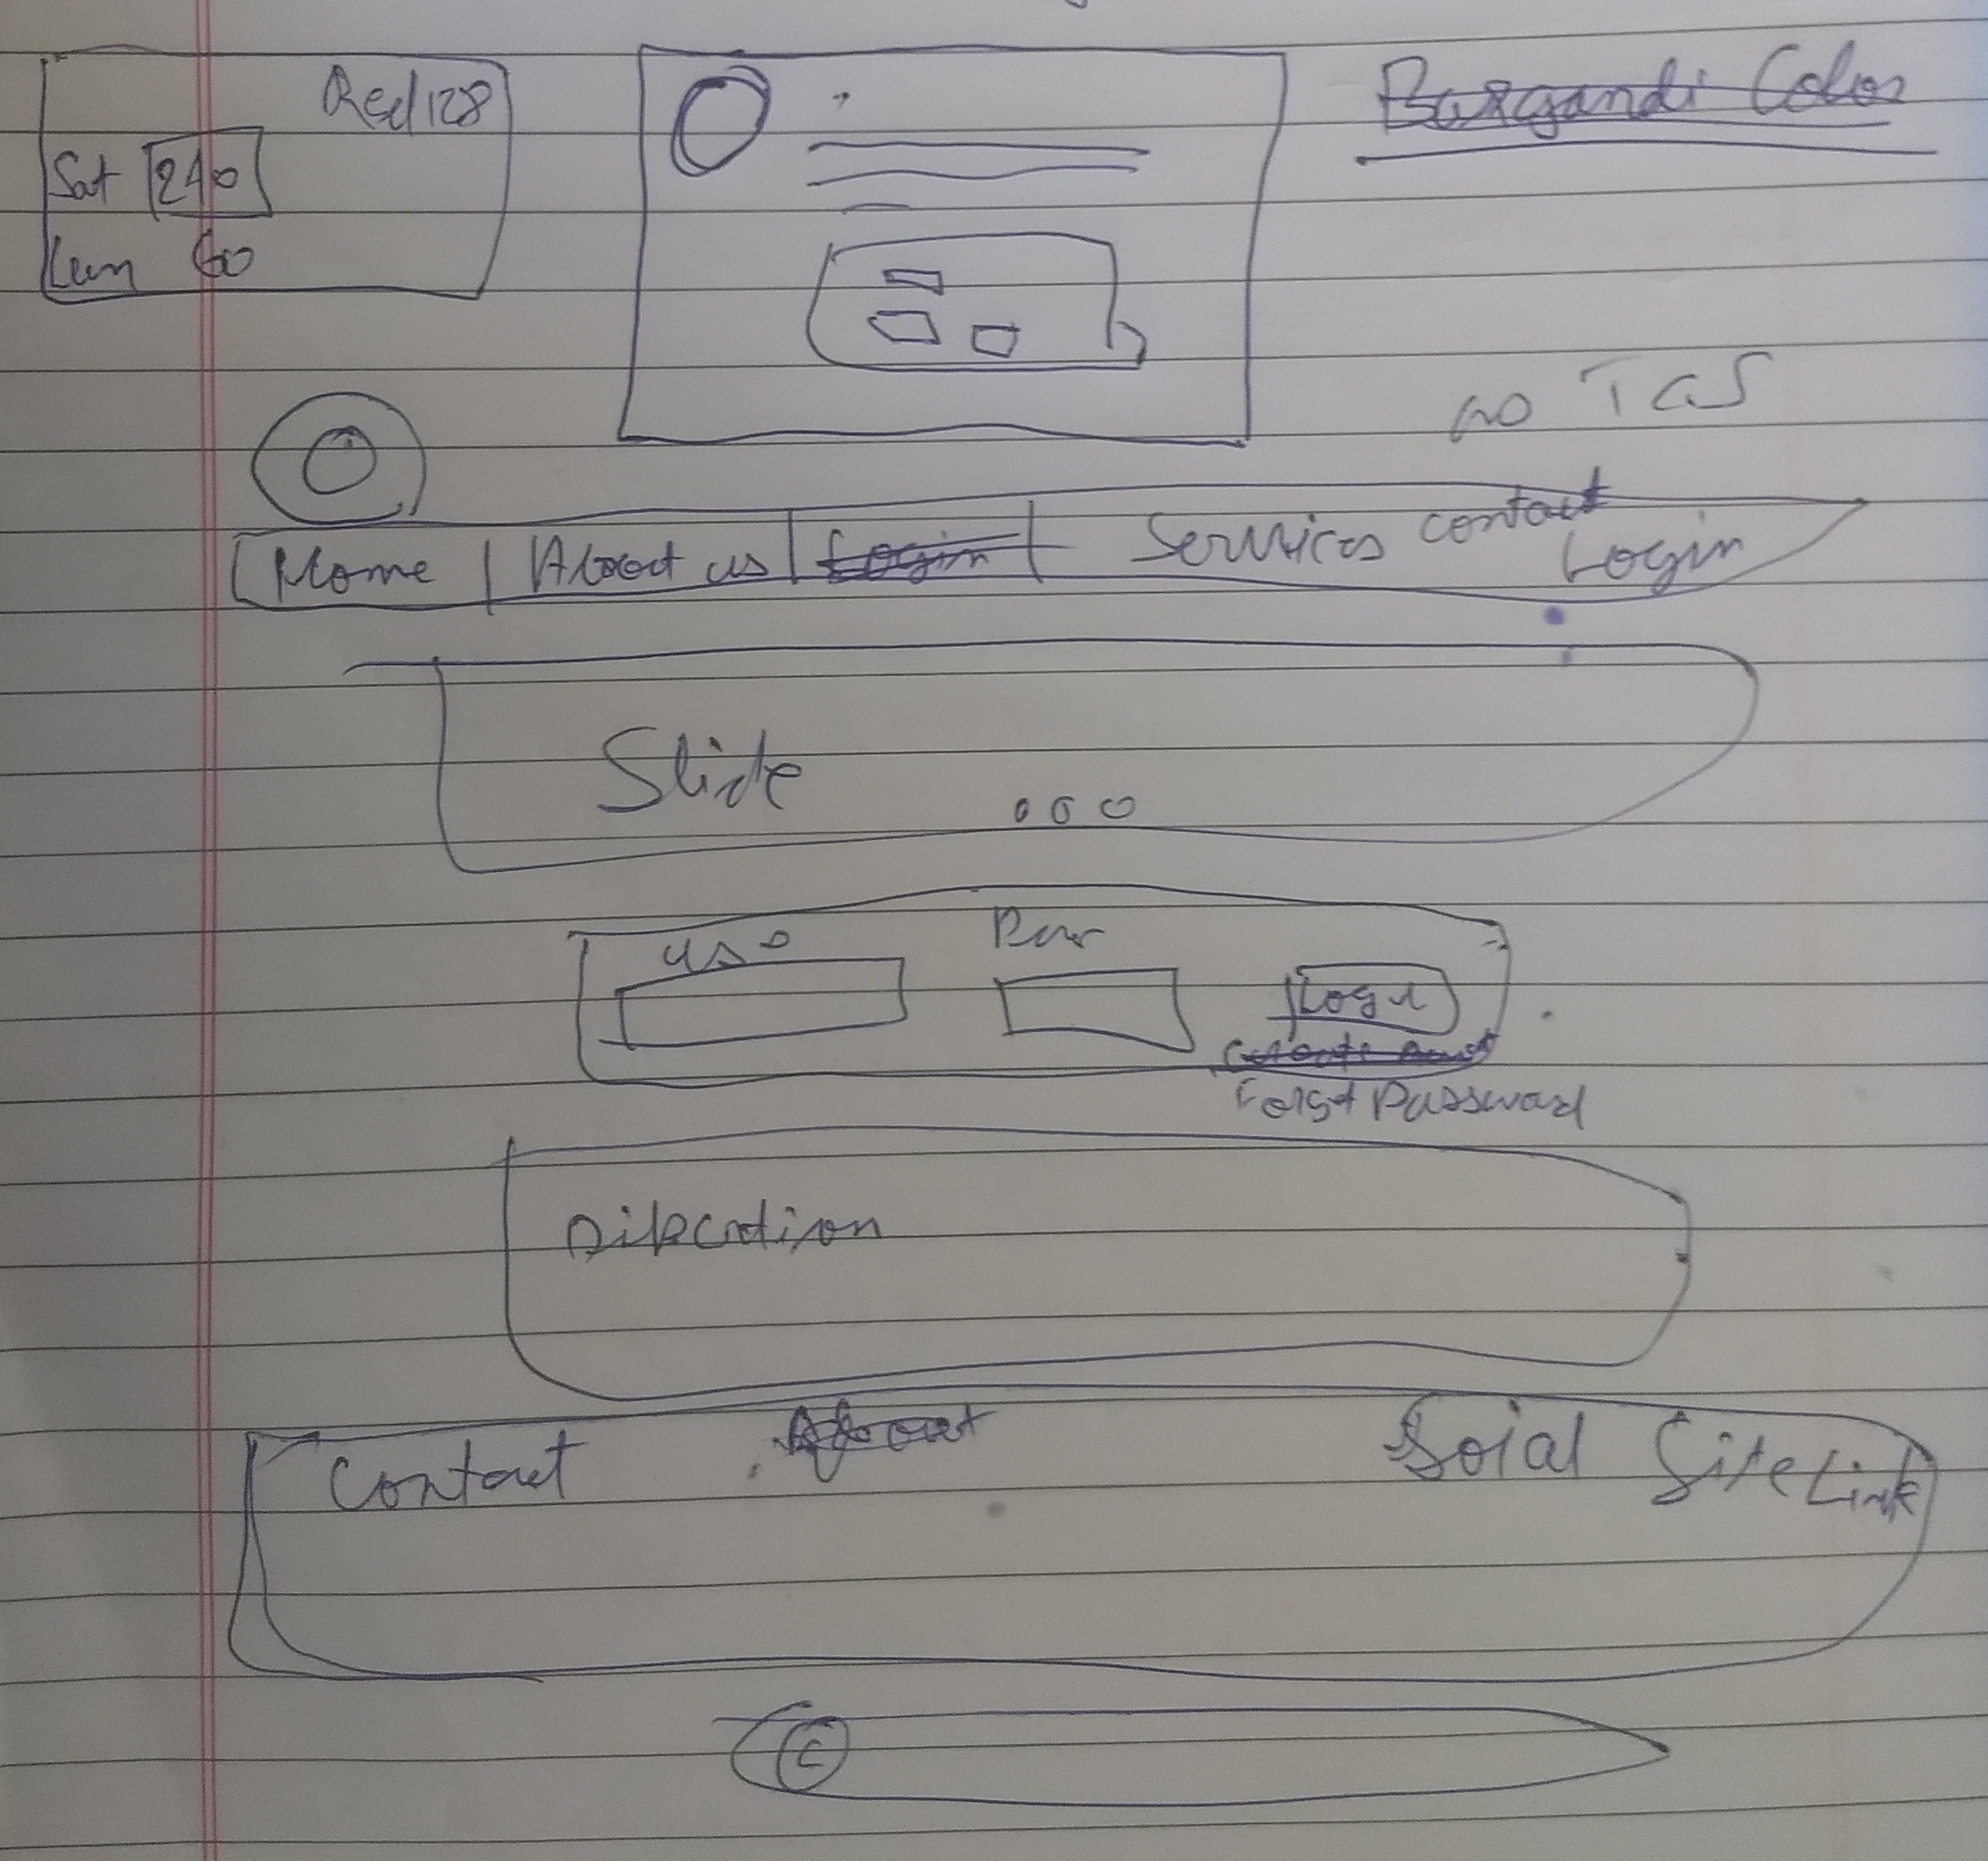 Red 128
Sat 240
Lum 60
Burgandi Color
TCS
Home | About us | Login | Services contact Login
Slide
Login
Forgot Password
Contact About Soial Site Link
©